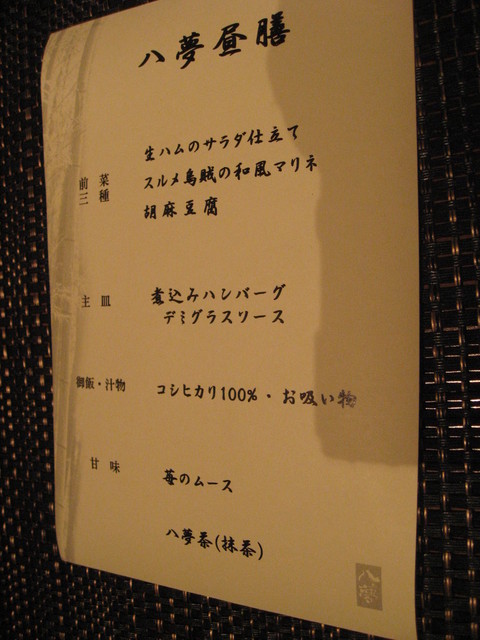 八夢昼膳
前菜
三種
生ハムのサラダ仕立て
スルメ烏賊の和風マリネ
胡麻豆腐
主皿
煮込みハンバーグ
デミグラスソース
御飯・汁物
コシヒカリ100%・お吸い物
甘味
苺のムース
八夢茶(抹茶)
八夢